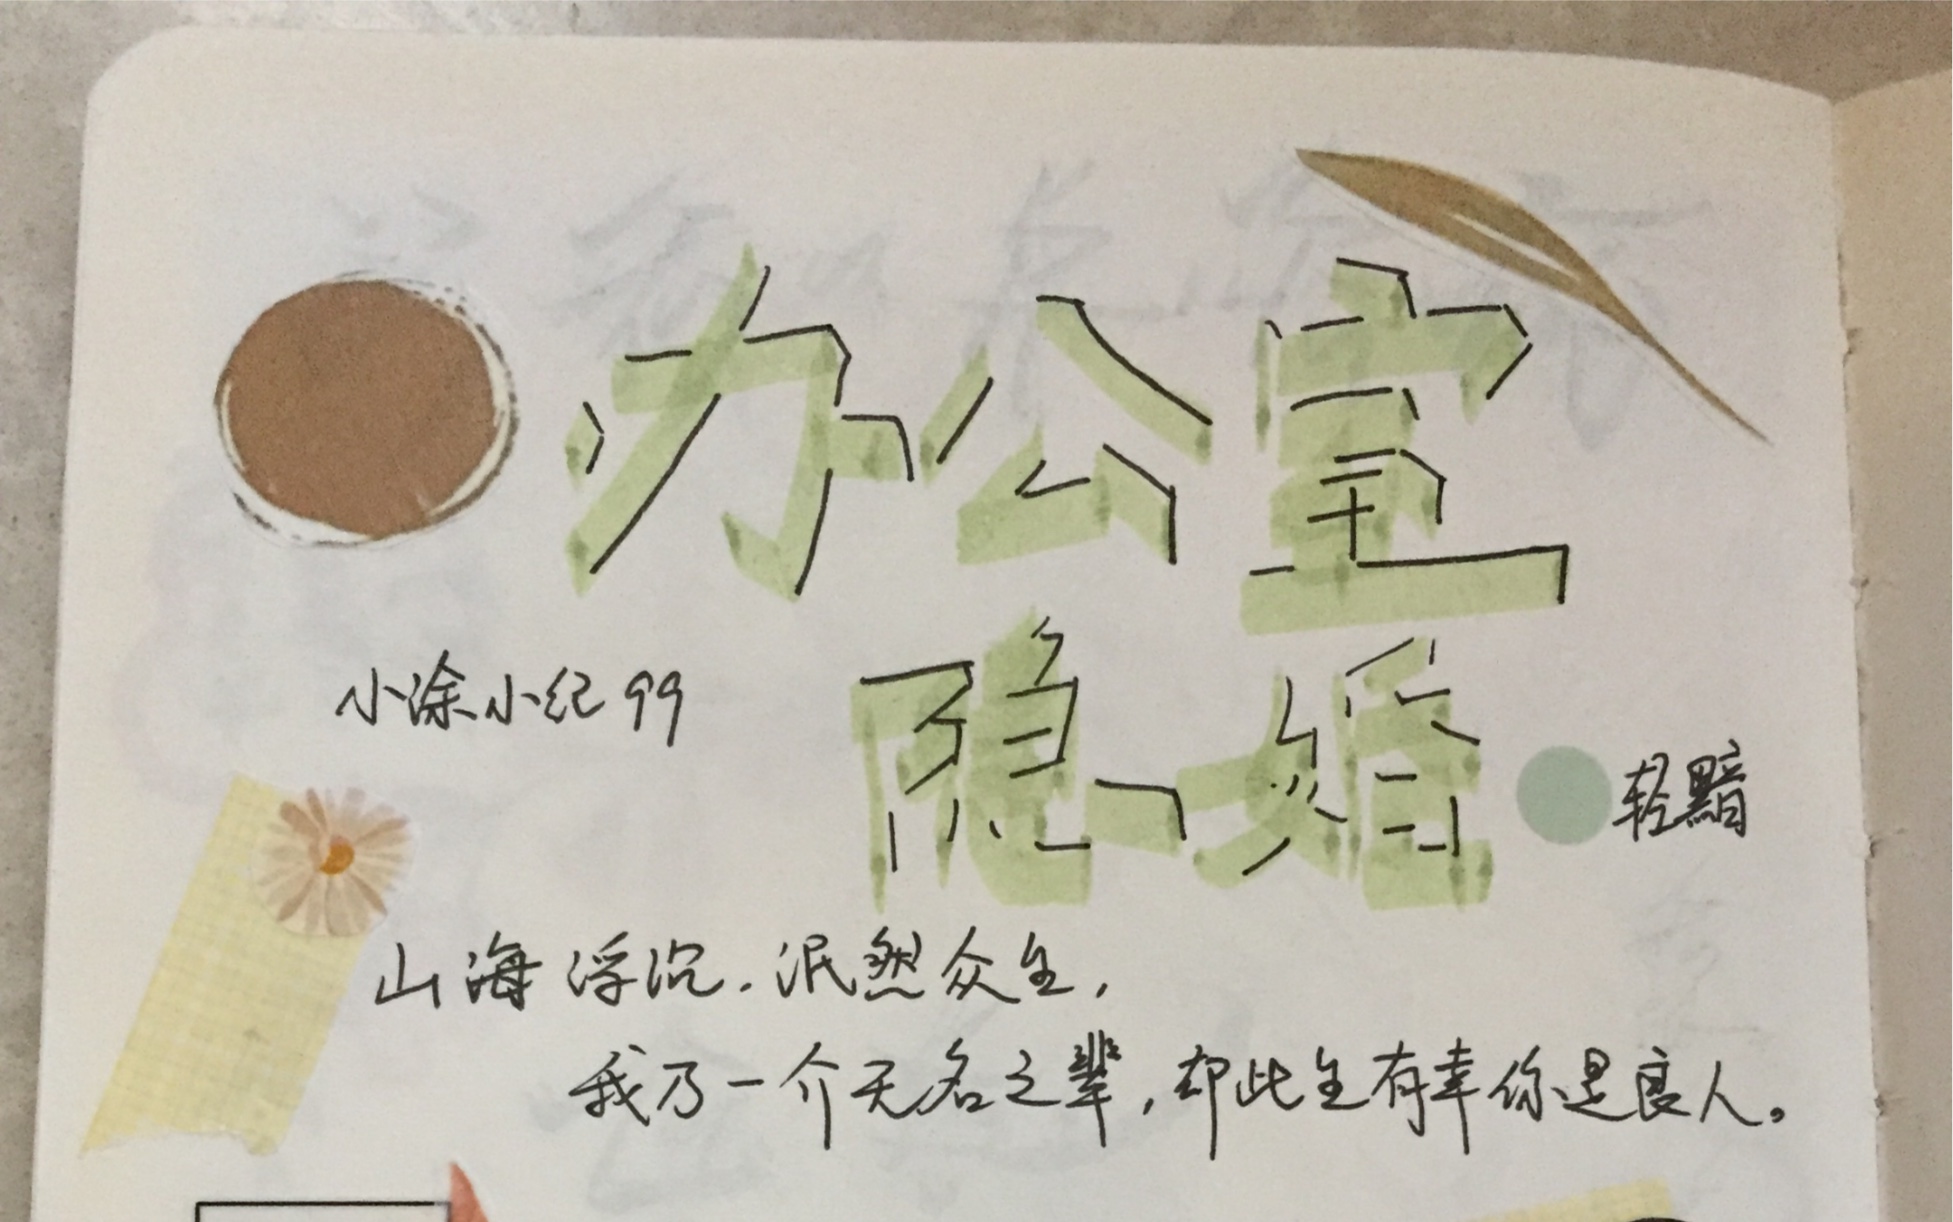 办公室
隐婚
小涂小纪 99
轻黯
山海浮沉.泯然众生,
我乃一介无名之辈,却此生有幸你是良人。